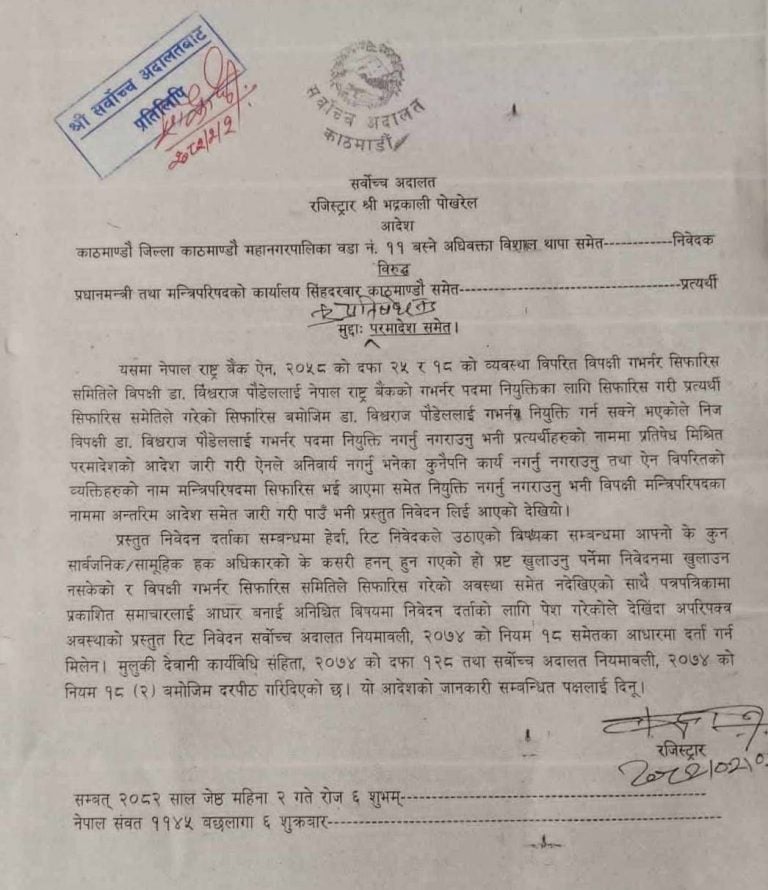 श्री सर्वोच्च अदालतबाट
प्रतिलिपि
२०८२/२/२
सर्वोच्च अदालत
काठमाडौं
सर्वोच्च अदालत
रजिस्ट्रार श्री भद्रकाली पोखरेल
आदेश
काठमाण्डौ जिल्ला काठमाण्डौ महानगरपालिका वडा नं. ११ बस्ने अधिवक्ता विशाल थापा समेत------------निवेदक
विरुद्ध
प्रधानमन्त्री तथा मन्त्रिपरिषदको कार्यालय सिंहदरवार काठमाण्डौ समेत---------------------------------------प्रत्यर्थी
मुद्दाः परमादेश समेत।
यसमा नेपाल राष्ट्र बैंक ऐन, २०५८ को दफा २५ र १८ को व्यवस्था विपरित विपक्षी गभर्नर सिफारिस
समितिले विपक्षी डा. विश्वराज पौडेललाई नेपाल राष्ट्र बैंकको गभर्नर पदमा नियुक्तिका लागि सिफारिस गरी प्रत्यर्थी
सिफारिस समेतिले गरेको सिफारिस बमोजिम डा. विश्वराज पौडेललाई गभर्नर नियुक्ति गर्न सक्ने भएकोले निज
विपक्षी डा. विश्वराज पौडेललाई गभर्नर पदमा नियुक्ति नगर्नु नगराउनु भनी प्रत्यर्थीहरुको नाममा प्रतिषेध मिश्रित
परमादेशको आदेश जारी गरी ऐनले अनिवार्य नगर्नु भनेका कुनैपनि कार्य नगर्नु नगराउनु तथा ऐन विपरितको
व्यक्तिहरुको नाम मन्त्रिपरिषदमा सिफारिस भई आएमा समेत नियुक्ति नगर्नु नगराउनु भनी विपक्षी मन्त्रिपरिषदका
नाममा अन्तरिम आदेश समेत जारी गरी पाउँ भनी प्रस्तुत निवेदन लिई आएको देखियो।
प्रस्तुत निवेदन दर्ताका सम्बन्धमा हेर्दा, रिट निवेदकले उठाएको विषयका सम्बन्धमा आफ्नो के कुन
सार्वजनिक/सामूहिक हक अधिकारको के कसरी हनन् हुन गएको हो प्रष्ट खुलाउनु पर्नेमा निवेदनमा खुलाउन
नसकेको र विपक्षी गभर्नर सिफारिस समितिले सिफारिस गरेको अवस्था समेत नदेखिएको साथै पत्रपत्रिकामा
प्रकाशित समाचारलाई आधार बनाई अनिश्चित विषयमा निवेदन दर्ताको लागि पेश गरेकोले देखिंदा अपरिपक्व
अवस्थाको प्रस्तुत रिट निवेदन सर्वोच्च अदालत नियमावली, २०७४ को नियम १८ समेतका आधारमा दर्ता गर्न
मिलेन। मुलुकी देवानी कार्यविधि संहिता, २०७४ को दफा १२८ तथा सर्वोच्च अदालत नियमावली, २०७४ को
नियम १८ (२) बमोजिम दरपीठ गरिदिएको छ। यो आदेशको जानकारी सम्बन्धित पक्षलाई दिनू।
रजिस्ट्रार
सम्बत् २०८२ साल जेष्ठ महिना २ गते रोज ६ शुभम्-----------------------------------------------
नेपाल संवत ११४५ बछलागा ६ शुक्रबार----------------------------------------------------------